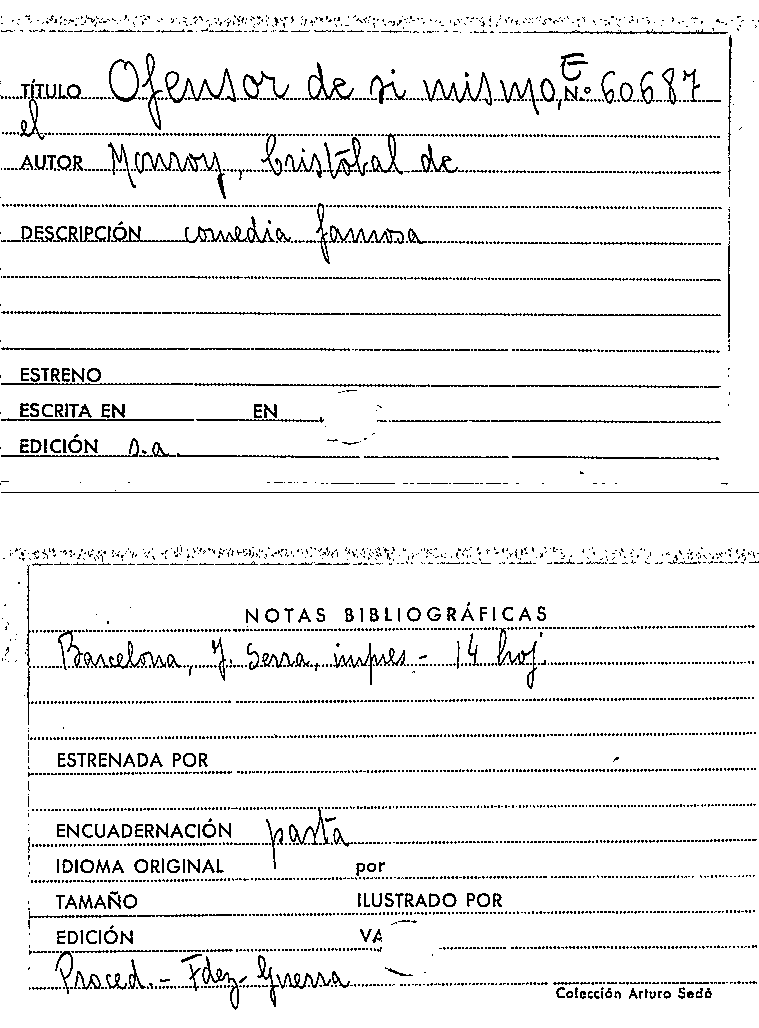 TÍTULO Ofensor de si mismo, E N.º 60687
el
AUTOR Monroy, Cristóbal de
DESCRIPCIÓN comedia famosa
ESTRENO
ESCRITA EN EN
EDICIÓN s.a.
NOTAS BIBLIOGRÁFICAS
Barcelona, J. Serra, impres - 14 hoj.
ESTRENADA POR
ENCUADERNACIÓN pasta
IDIOMA ORIGINAL por
TAMAÑO ILUSTRADO POR
EDICIÓN VA
Proced. - Fdez-Guerra
Colección Arturo Sedó